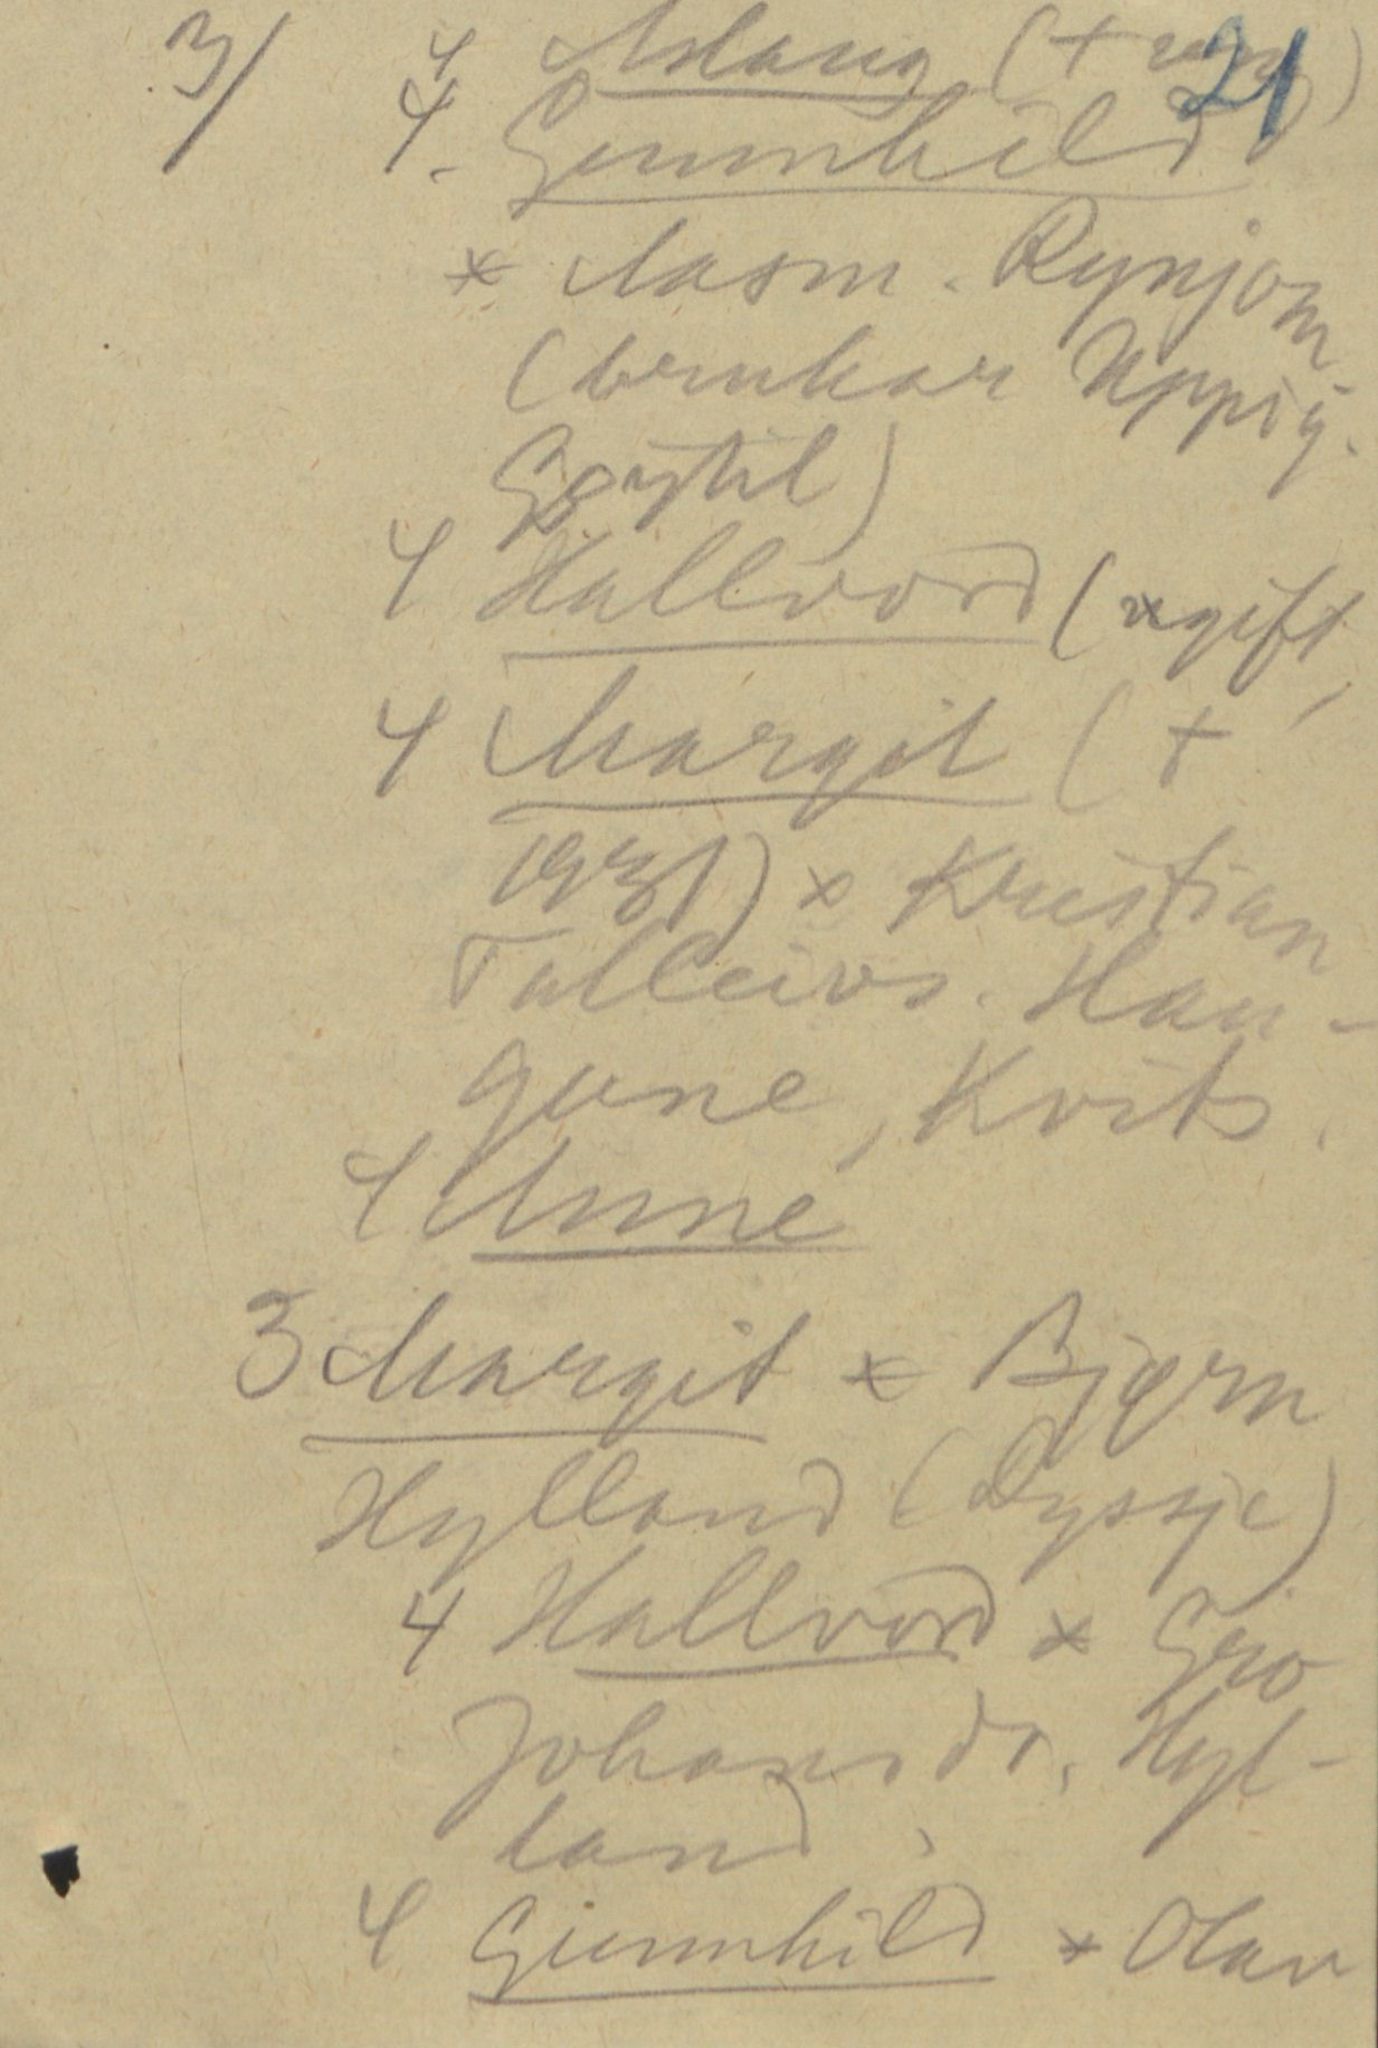 3/ 4 Aslaug (+ ung) 21
4. Gunnhild
x Aasm. Rynjom
(brukar Uppig.
Hallvord (ugift,
4 Margit (+
1931) x Kristian
Talleivs. Hau-
gane, Kvits.
4 Anne
3 Margit x Bjørn
Hylland (Dyssje)
4 Hallvord x Gro
Johansdr. Hyl-
land.
4 Gunnhild x Olav